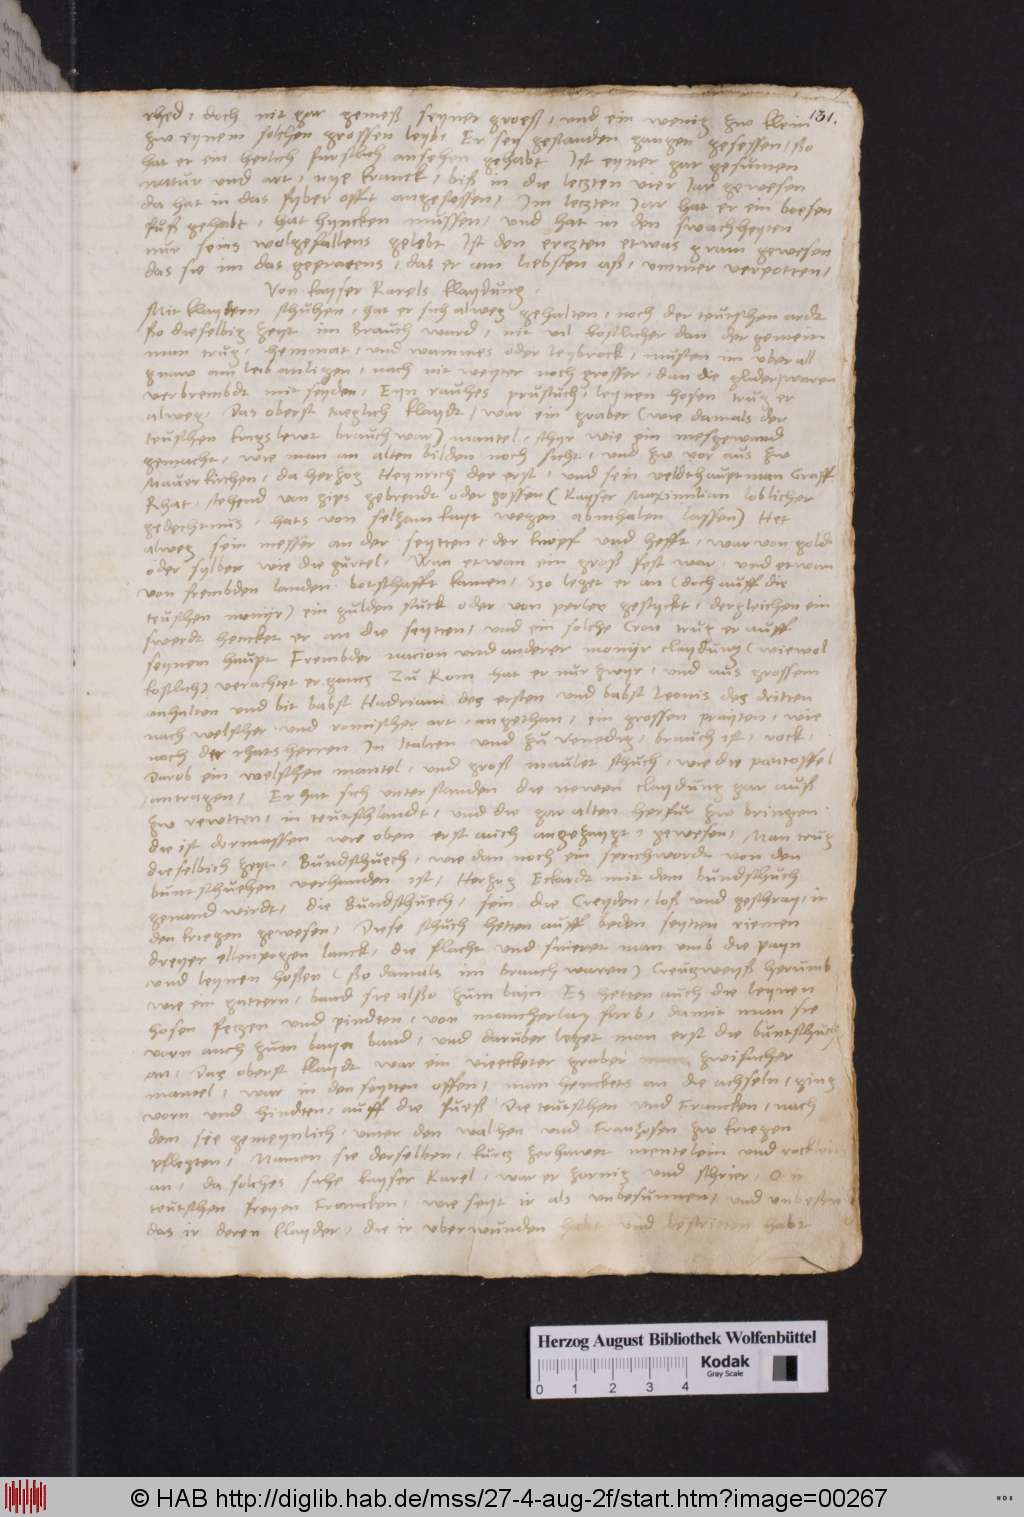 131.
rhed, doch nit gar gemeß seyner groeß, und ein wenig zw klein
zw eynem solchen grossen leyb, Er sey gestanden gangen gesessen, ßo
hat er ein herlich furstlich ansehen gehabt Ist eyner gar gesunten
natur und art, nye kranck, biß in die leczten vier Jar gewesen
da hat in das fyber offt angestossen, Im leczten Jar hat er ein boesen
fuß gehabt, hat hyncken mussen, und hat in den swachheyten
nur seins wolgefallens gelebt Ist den erczten etwas gram gewesen
das sie im das gepratens, das er am liebsten aß, ymmer verpotten,
Von kayser Karels klaydung.
Mit klaydern schuhen, hat er sich alweg gehalten, noch der teutschen ardt
ßo dieselbig zeyt im brauch ward, nit vil kostlicher dan der gemein
man trug, hemmat, und wammes oder leybrock, musten im uberall
gnaw am leib anligen, nach nit weyter noch grosser, dan die glider waren
verbrembdt mit seyden, Eyn rauhes prustuch, leynen hosen trug er
alweg, Das oberst taeglich klaydt, war ein graber (wie damals der
teuschen krigslewt brauch war) mantel, schyr wie ein mesgewand
gemacht, wie man an alten bilden noch sicht, und zw vor aus zw
Mauerkirchen, da herzog Heynrich der erst, und sein veldthauptman Graff
Rhat, stehend von gips gebrendt oder gossen (Kayser Maximilian loblicher
gedechtnus, hats von selzamkayt wegen abmhalen lassen) Het
alweg sein messer an der seytten, der knopf und hefft, war von goldt
oder sylber wie die gurtel, Wan etwan ein groß fest war, und etwan
von frembden landen botschafft kamen, Szo leget er an (doch auff die
teuschen monyr) ein gulden stuck oder von perlen gestyckt, dergleichen ein
swerdt hencket er an die seytten, und ein solche Cron trug er auff
seynem haupt Frembder nacion und anderer monyr claydung (wiewol
kostlich) verachtet er gancz Zu Rom hat er nur zwyr, und aus grossem
anhalten und bit babst Hadriani des ersten und babst Leonis des dritten
nach welscher und romischer art, angethan, ein grossen prayten, wie
noch der rhatsherren In Italien und zu Venedig, brauch ist, rock,
Darob ein welschen mantel, und groß maulet schuch, wie die pantoffel
antragen, Er hat sich unterstanden die newen claydung gar auß
zw rewtten, in teutschlandt, und die gar alten herfur zw bringen
die ist dermassen wie oben erst auch angezaygt, gewesen, Man trug
dieselbich zeyt, Bundschuech, wie dan noch ein sprichwordt von den
buntschuehen verhanden ist, Herzog Eckardt mit dem bundschuch
genand wirdt, die Bundschuech, sein die Creyden, loß und geschray, in
den kriegen gewesen, Diese schuch hetten auff beden seytten riemen
dreyer ellenpogen lanck, die flacht und snieret man umb die payn
und leynen hoßen (ßo damals im brauch waren) Creuczweyß herumb
wie ein gattern, band sie alßo zum bain Es hetten auch die leynen
hosen feczen und pindten, von mancherlay farb, damit man sie
vorn auch zum bayn band, und daruber leget man erst die buntschuch
an, Das oberst klaydt war ein vierecketer graber zwifacher
mantel, war in den seytten offen, man henckets an die achseln, ging
vorn und hindten, auff die fueß Die teutschen und Francken, nach
dem sie gemeynlich unter den walhen und Franzosen zw kriegen
pflegten, Namen sie derselben, kurcz zerhawet mentelein und rocklein
an, da solches sahe kayser Karel, war er zornig und schrier, O ir
teutschen freyen Francken, wie seyt ir als unbesunnen, und unbesten
das ir deren klayder, die ir uberwunden habt und bestritten habt
Herzog August Bibliothek Wolfenbüttel
Kodak
Gray Scale
0 1 2 3 4
© HAB http://diglib.hab.de/mss/27-4-aug-2f/start.htm?image=00267